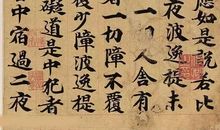 應如是說若比
夜波逸提未
一切人舍有
一切障不覆
少障波逸提
礙道是中犯者
中宿過二夜